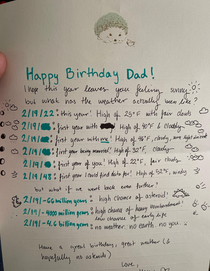 Happy Birthday Dad!
I hope this year leaves you feeling sunny
but what has the weather actually been like?
2/19/22: this year! High of 25°F with fair clouds
2/19/ first year with High of 40°F & cloudy
2/19/ first year with me! High of 48°F,
2/19/ first year being married! High of 32°F, cloudy
2/19/ first year of you! High of 22°F, fair
2/19/48: first year I could find data for! High of 52°F, windy
but what if we went back even further?
2/19/-66 million years: high chance of asteroid
2/19/-4000 million years: high chance of heavy bombardment,
low chance of early life
2/19/-4.6 million years: no weather, no earth, no you
Have a great birthday, great weather (&
hopefully no asteroids)
Love,